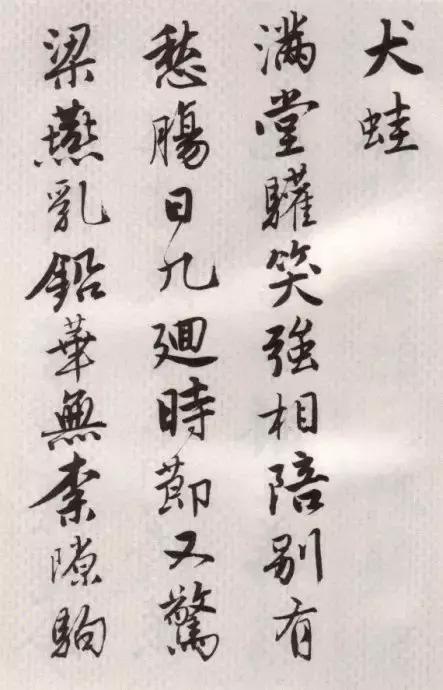 犬蛙
满堂驩笑強相陪別有
愁腸日九廻時節又驚
梁燕乳鉛華無柰隙駒